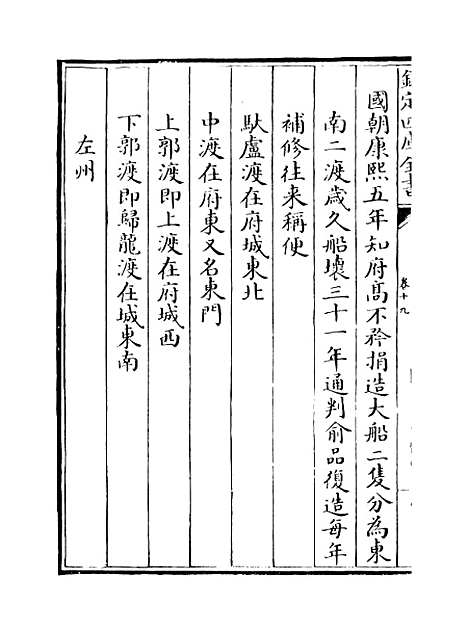 欽定四庫全書
卷十九
國朝康熙五年知府高不矜捐造大船二隻分為東
南二渡歲久船壞三十一年通判俞品復造每年
補修往来稱便
馱盧渡在府城東北
中渡在府東又名東門
上郭渡即上渡在府城西
下郭渡即歸龍渡在城東南
左州